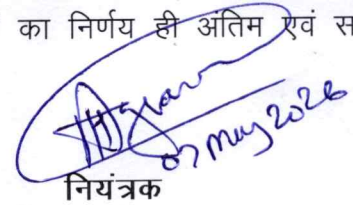 का निर्णय ही अंतिम एवं स
07 May 2026
नियंत्रक